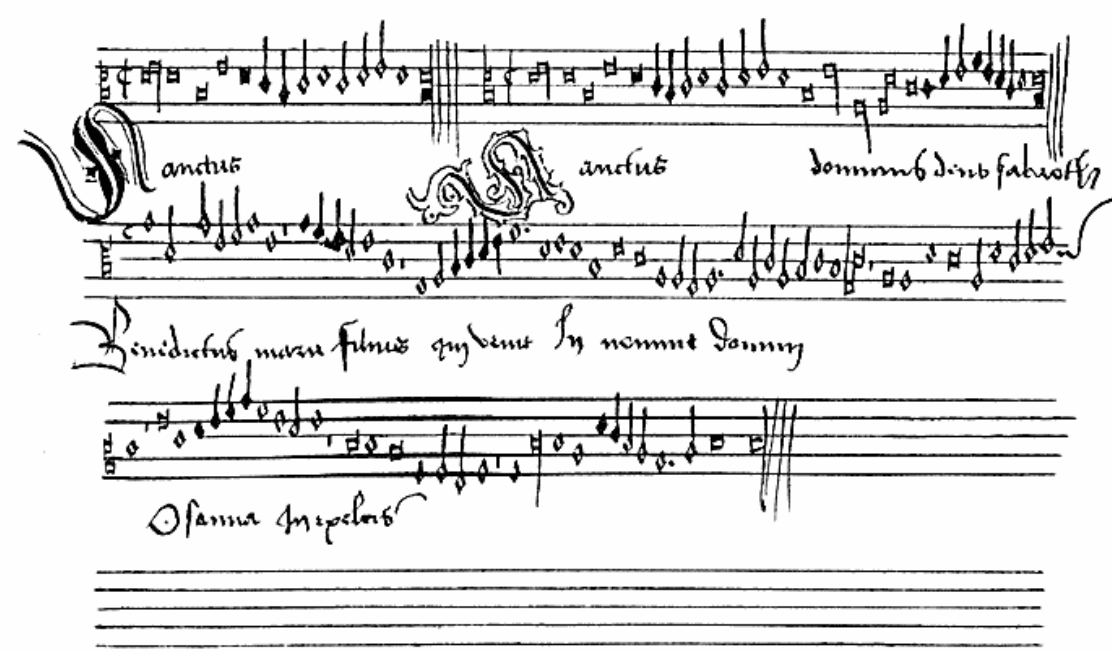 Sanctus Sanctus dominus deus sabaoth
Benedictus marie filius qui venit In nomine domini
Osanna In excelsis